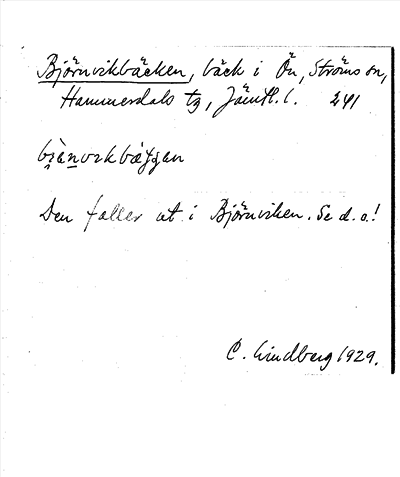 Björnvikbäcken, bäck i Ön, Ströms sn,
Hammerdals tg, Jämtl. l. 241
Den faller ut i Björnviken. Se d. o.!
C. Lindberg 1929.